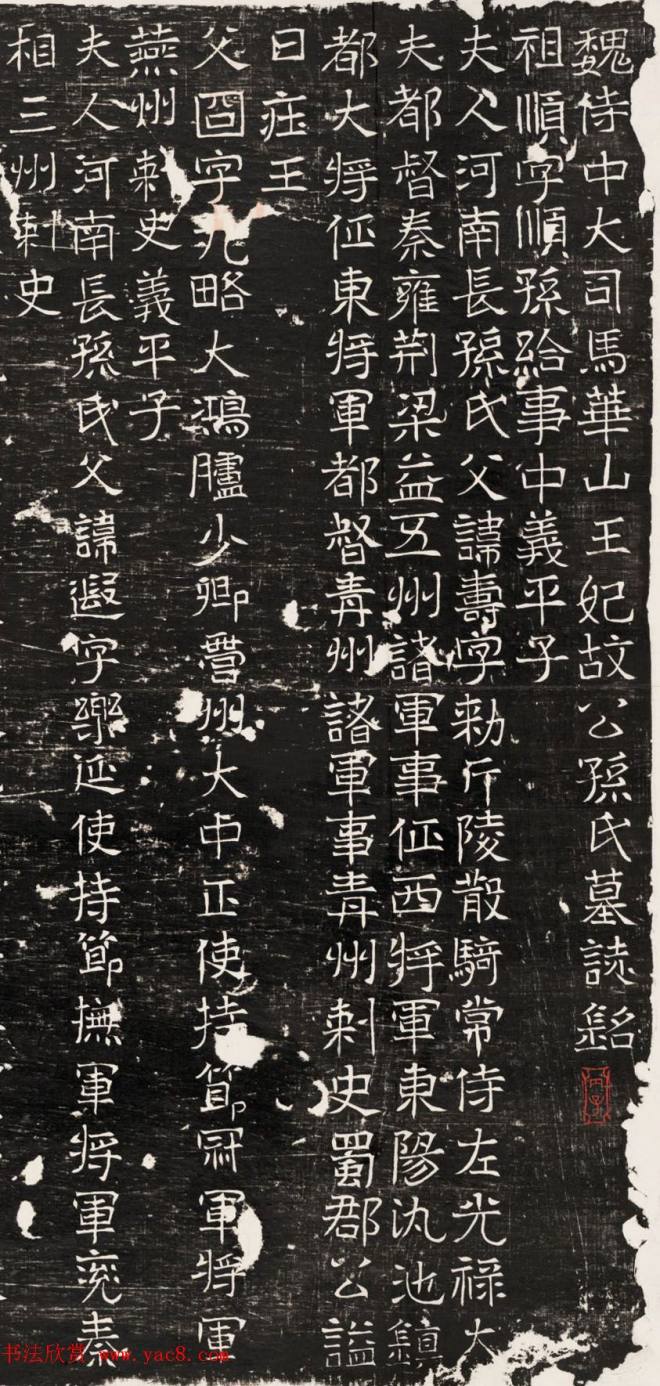 魏侍中大司馬華山王妃故公孫氏墓誌銘
祖順字順孫給事中義平子
夫人河南長孫氏父諱壽字勑斤陵散騎常侍左光祿大
夫都督秦雍荊梁益五州諸軍事征西將軍東陽仇池鎮
都大將征東將軍都督青州諸軍事青州刺史蜀郡公謚
曰莊王
父冏字九略大鴻臚少卿營州大中正使持節冠軍將軍
燕州刺史義平子
夫人河南長孫氏父諱遐字樂延使持節撫軍將軍兗秦
相三州刺史
书法欣赏 www.yac8.com